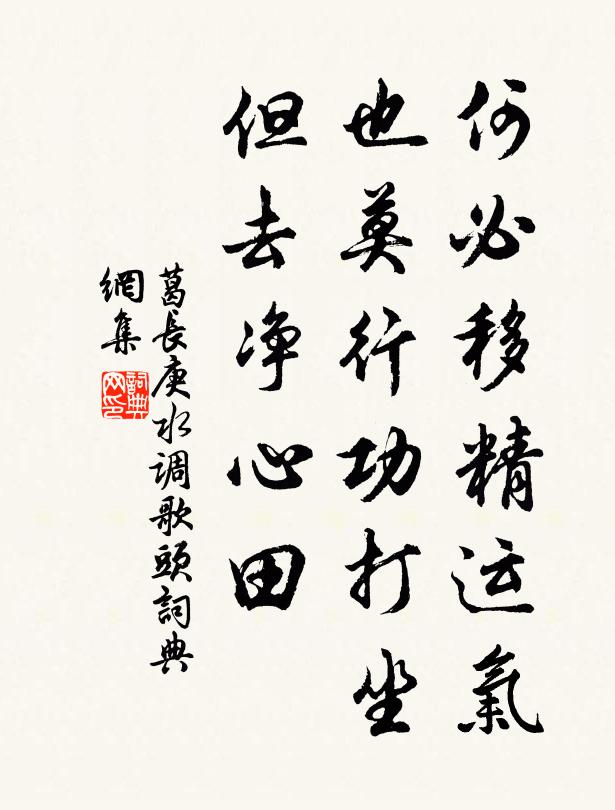 何必移精运氣
也莫行功打坐
但去净心田
葛長庚水调歌頭詞典
網集
詞典
网印